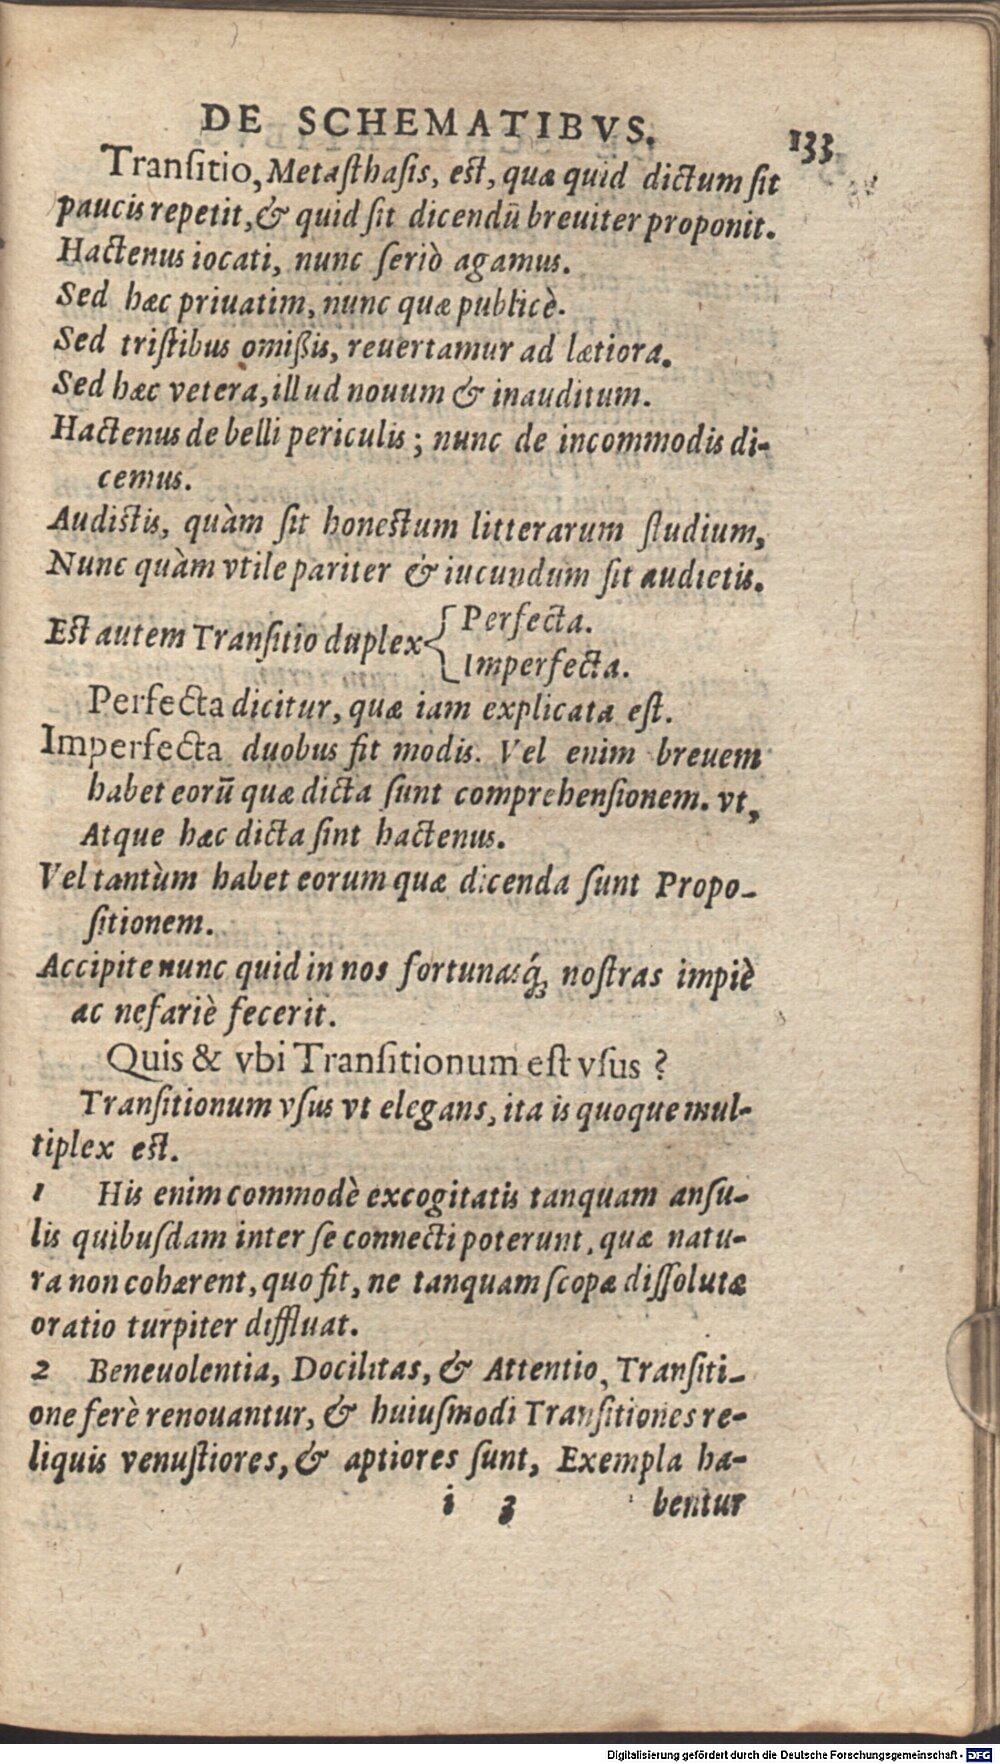 DE SCHEMATIBVS. 133
Tranſitio, Metaſthaſis, eſt, quæ quid dictum ſit
paucis repetit, & quid ſit dicendū breuiter proponit.
Hactenus iocati, nunc ſeriò agamus.
Sed hæc priuatim, nunc quæ publicè.
Sed triſtibus omiſsis, reuertamur ad lætiora.
Sed hæc vetera, illud nouum & inauditum.
Hactenus de belli periculis; nunc de incommodis di-
cemus.
Audiſtis, quàm ſit honeſtum litterarum ſtudium,
Nunc quàm vtile pariter & iucundum ſit audietis.
Eſt autem Tranſitio duplex { Perfecta.
Imperfecta.
Perfecta dicitur, quæ iam explicata eſt.
Imperfecta duobus fit modis. Vel enim breuem
habet eorū quæ dicta ſunt comprehenſionem. vt,
Atque hæc dicta ſint hactenus.
Vel tantùm habet eorum quæ dicenda ſunt Propo-
ſitionem.
Accipite nunc quid in nos fortunasq́; noſtras impiè
ac nefariè fecerit.
Quis & vbi Tranſitionum eſt vſus?
Tranſitionum vſus vt elegans, ita is quoque mul-
tiplex eſt.
1 His enim commodè excogitatis tanquam anſu-
lis quibuſdam inter ſe connecti poterunt, quæ natu-
ra non cohærent, quo fit, ne tanquam ſcopæ diſſolutæ
oratio turpiter diffluat.
2 Beneuolentia, Docilitas, & Attentio, Tranſiti-
one ferè renouantur, & huiuſmodi Tranſitiones re-
liquis venuſtiores, & aptiores ſunt, Exempla ha-
i 3 bentur
Digitalisierung gefördert durch die Deutsche Forschungsgemeinschaft - DFG